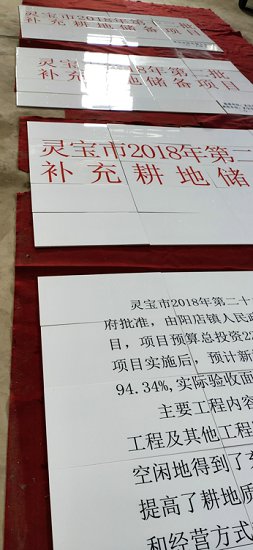 灵宝市2018年第二批
补充耕地储备项目
灵宝市2018年第二批
补充耕地储备项目
灵宝市2018年第二
补充耕地储
灵宝市2018年第二十
府批准，由阳店镇人民政
目，项目预算总投资22
项目实施后，预计新
94.34%,实际验收面
主要工程内容
工程及其他工程
空闲地得到了充
提高了耕地质
和经营方式